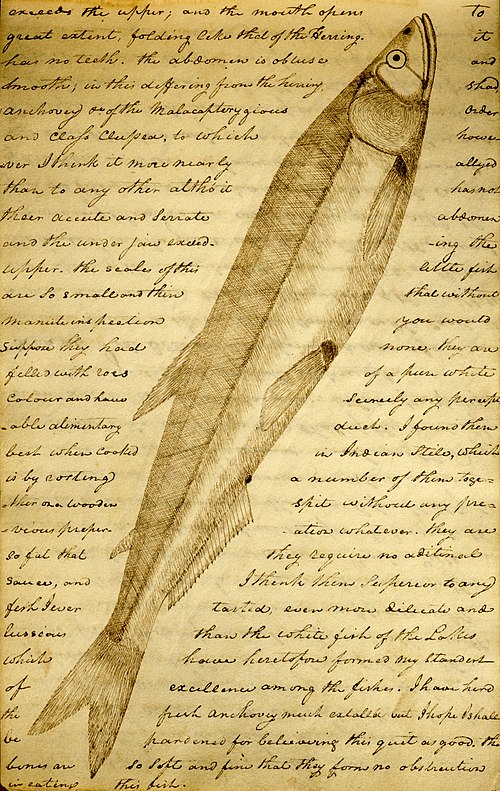 exceeds the upper; and the mouth opens to
great extent, folding like that of the Herring. it
has no teeth. the abdomen is obtuse and
smooth; in this differing from the herring, shad,
anchovey &c of the Malacapterygious Order
and Class Clupea, to which howe
ver I think it more nearly allyed
than to any other altho' it has not
their accute and serrate abdomen
and the under jaw exceed- -ing the
upper. the scales of this little fish
are so small and thin that without
manute inspection you would
suppose they had none. they are
filled with roes of a pure white
colour and have scercely any percept
-able alimentary duct. I found them
best when cooked in Indian Stile, which
is by rosting a number of them toge-
-ther on a wooden spit without any pre-
-vious preper- -ation whatever. they are
so fat that they require no aditinal
sauce, and I think them superior to any
fish I ever tasted, even more dilicate and
lusscious than the white fish of the Lakes
which have heretofore formed my standart
of excellence among the fishes. I have herd
the fresh anchovey much extolled but I hope I shall
be pardoned for believing this quit as good. the
bones are so soft and fine that they form no obstruction
in eating this fish.